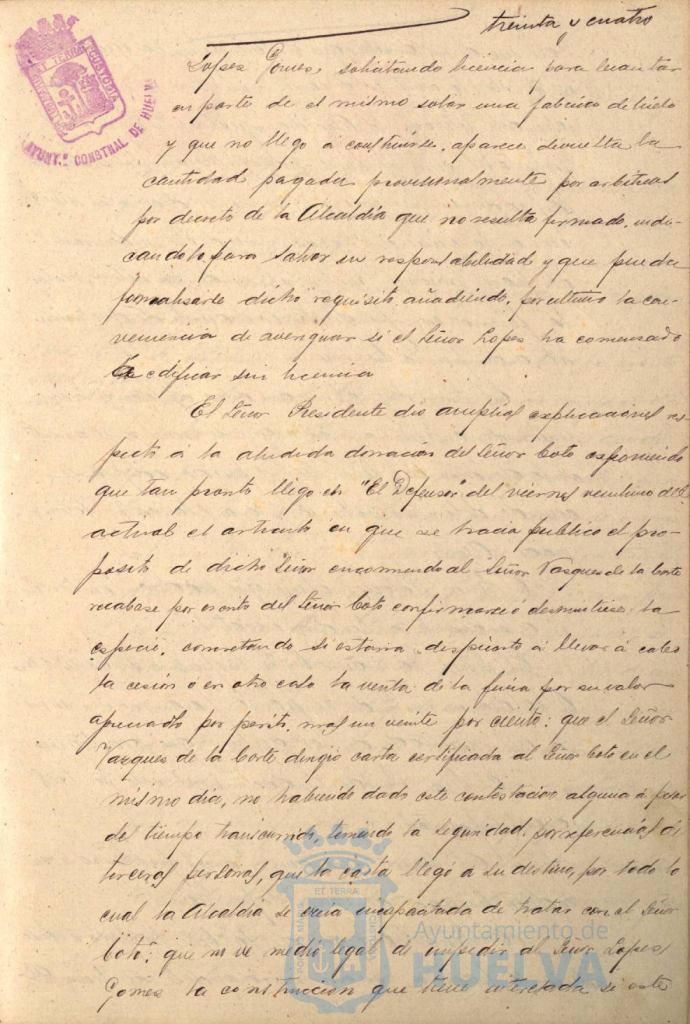 treinta y cuatro
AYUNT.º CONSTNAL DE HUELVA
Lopez Gomez, solicitando licencia para levantar
en parte de el mismo solar una fabrica de hielo
y que no llego á construirse, aparece devuelta la
cantidad pagada provisionalmente por arbitrios
por decreto de la Alcaldía que no resulta firmado, indi-
candolo para salvar su responsabilidad y que pueda
formalisarse dicho requisito, añadiendo, por ultimo la con-
veniencia de averiguar si el Señor Lopez ha comenzado
edificar sin licencia
El Señor Presidente dio amplias explicaciones res-
pecto á la aludida donacion del Señor Coto exponiendo
que tan pronto llego en "El Defensor" del viernes veintiuno del
actual el articulo en que se hacia publico el pro-
posito de dicho Señor encomendo al Señor Vazquez de la Corte
recabase por escrito del Señor Coto confirmase ó desmintiese la
especie, concretando si estaria dispuesto á llevar á cabo
la cesion ó en otro caso la venta de la finca por su valor
apreciado por perito, mas un veinte por ciento: que el Señor
Vazquez de la Corte dirigio carta certificada al Señor Coto en el
mismo dia, no habiendo dado este contestacion alguna á pesar
del tiempo transcurrido, teniendo la seguridad, por referencias de
terceras personas, que la carta llegó a su destino, por todo lo
cual la Alcaldía se creia incapacitada de tratar con el Señor
Coto: que no ve medio legal de impedir al Señor Lopez
Gomez la construccion que tiene interesada si este
ET TERRA
Ayuntamiento de
HUELVA